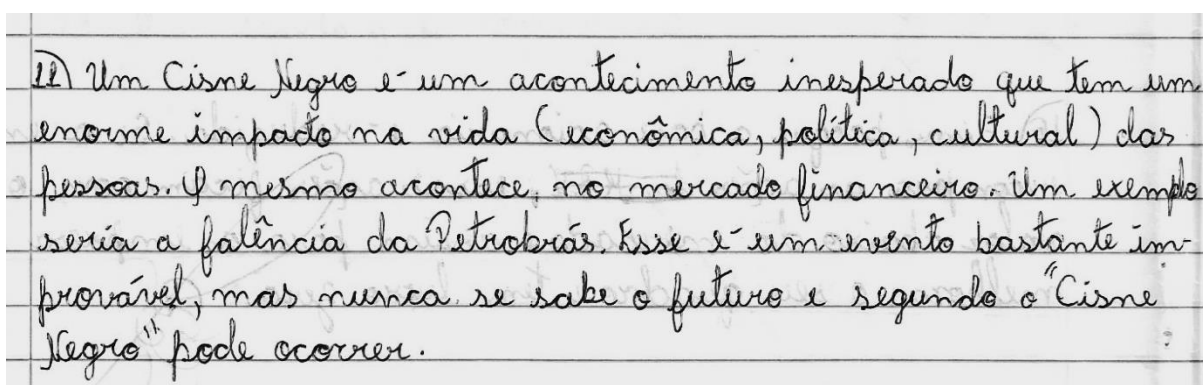 11) Um Cisne Negro é um acontecimento inesperado que tem um
enorme impacto na vida (econômica, política, cultural) das
pessoas. O mesmo acontece, no mercado financeiro. Um exemplo
seria a falência da Petrobrás. Esse é um evento bastante im-
provável, mas nunca se sabe o futuro e segundo o "Cisne
Negro" pode ocorrer.